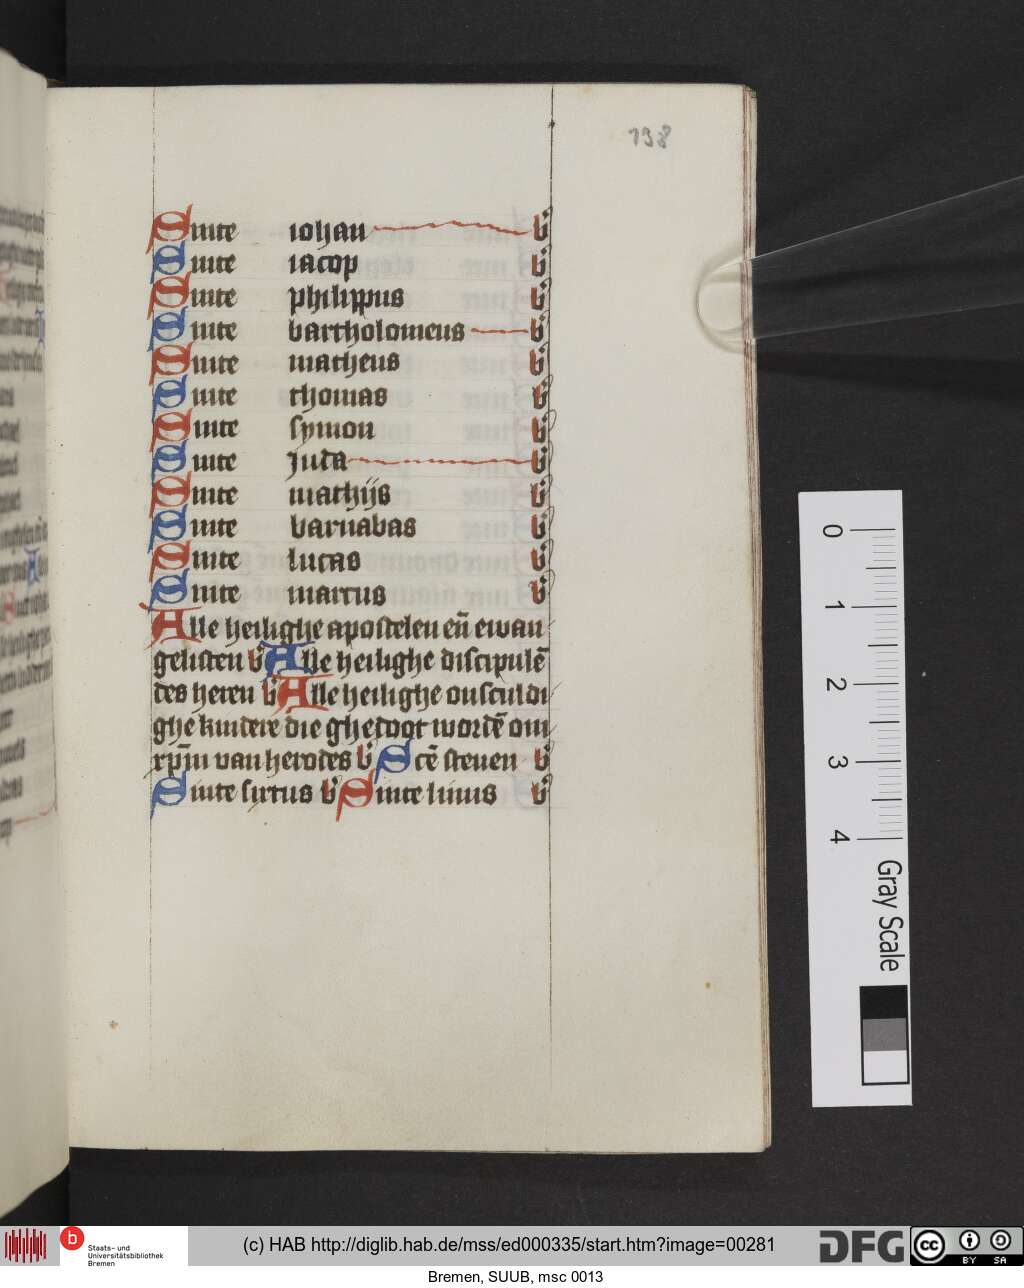 138
Sinte iohan b'
Sinte iacop b'
Sinte philippus b'
Sinte bartholomeus b'
Sinte matheus b'
Sinte thomas b'
Sinte symon b'
Sinte Juda b'
Sinte mathijs b'
Sinte barnabas b'
Sinte lucas b'
Sinte marcus b'
Alle heilighe apostelen en̄ ewan
gelisten b' Alle heilighe discipulē
des heren b' Alle heilighe onsculdi
ghe kindere die ghedoot wordē om
xp̄m van herodes b' Scē steuen b'
Sinte sixtus b' Sinte linus b'
0
1
2
3
4
Gray Scale
b Staats- und
Universitätsbibliothek
Bremen
(c) HAB http://diglib.hab.de/mss/ed000335/start.htm?image=00281
DFG
cc BY SA
Bremen, SUUB, msc 0013